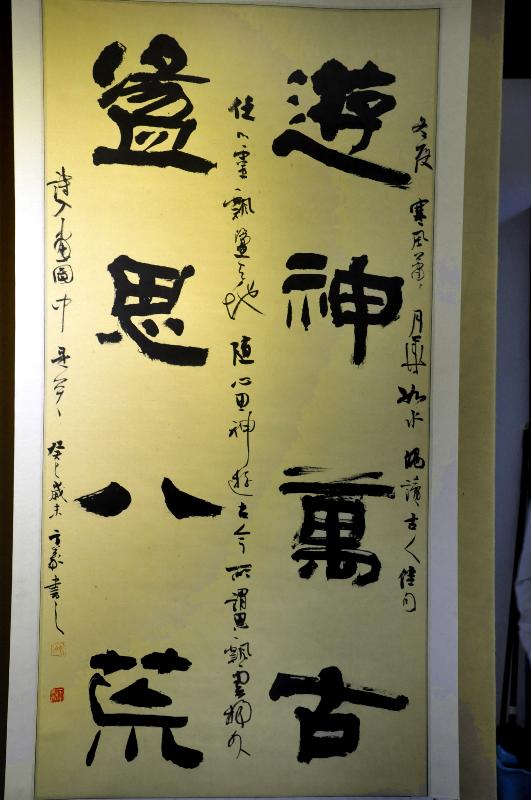 遊神萬古
盪思八荒
冬夜寒風蕭蕭月華如水偶讀古人佳句
任心靈飄盪天地隨心思神遊古今所謂思飄雲物外
詩入畫圖中是癸巳歲末書之